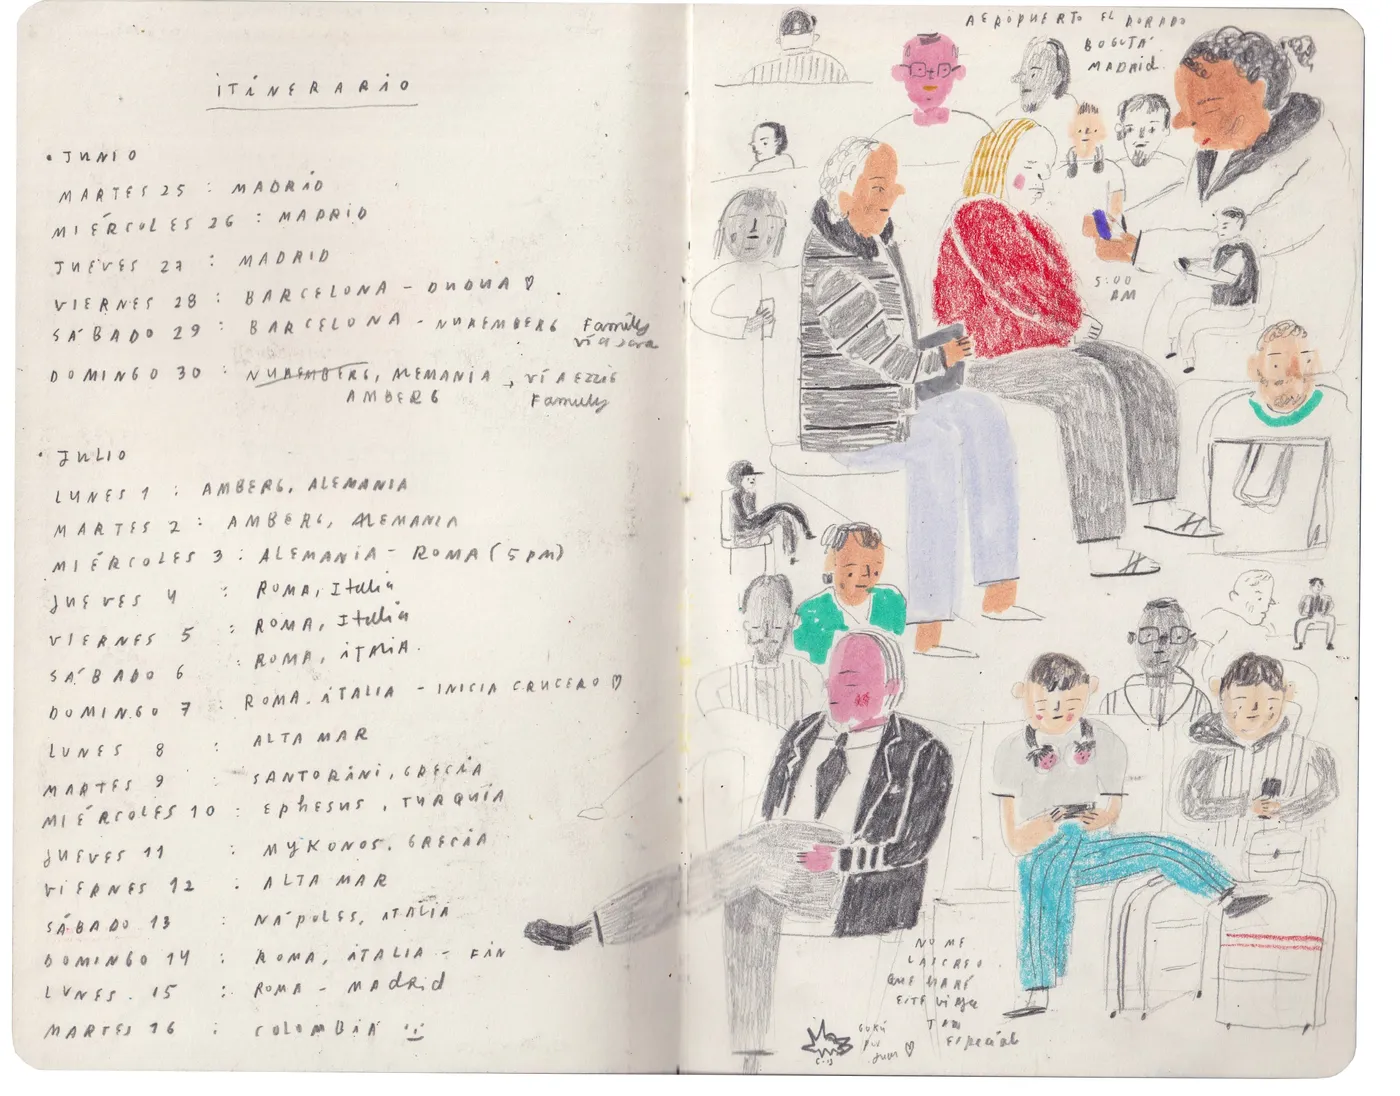 iTiNERARiO
• JUNIO
MARTES 25 : MADRiD
MIÉRCOLES 26 : MADRiD
JUEVES 27 : MADRID
VIERNES 28 : BARCELONA -
SÁBADO 29 : BARCELONA - NUREMBERG Family
vía
DOMINGO 30 : NUREMBERG, ALEMANIA
AMBERG Family
• JULIO
LUNES 1 : AMBERG, ALEMANIA
MARTES 2 : AMBERG, ALEMANIA
MIÉRCOLES 3 : ALEMANIA - ROMA (5 PM)
JUEVES 4 : ROMA, Italia
VIERNES 5 : ROMA, Italia
SÁBADO 6 : ROMA, iTALIA.
DOMINGO 7 : ROMA, iTALIA - INICIA CRUCERO ♡
LUNES 8 : ALTA MAR
MARTES 9 : SANTORiNi, GRECIA
MIÉRCOLES 10 : Ephesus, TURQUÍA
JUEVES 11 : MYKONOS, GRECIA
VIERNES 12 : ALTA MAR
SÁBADO 13 : NÁPOLES, iTALIA
DOMINGO 14 : ROMA, iTALIA - FIN
LUNES. 15 : ROMA - MAdRid
MARTES 16 : COLOMBIA
AEROPUERTO EL DORADO
BOGOTÁ
MADRid.
5:00
AM
NO ME
LA CREO.
QUE HARÉ
ESTE viaje
TAN
Especial